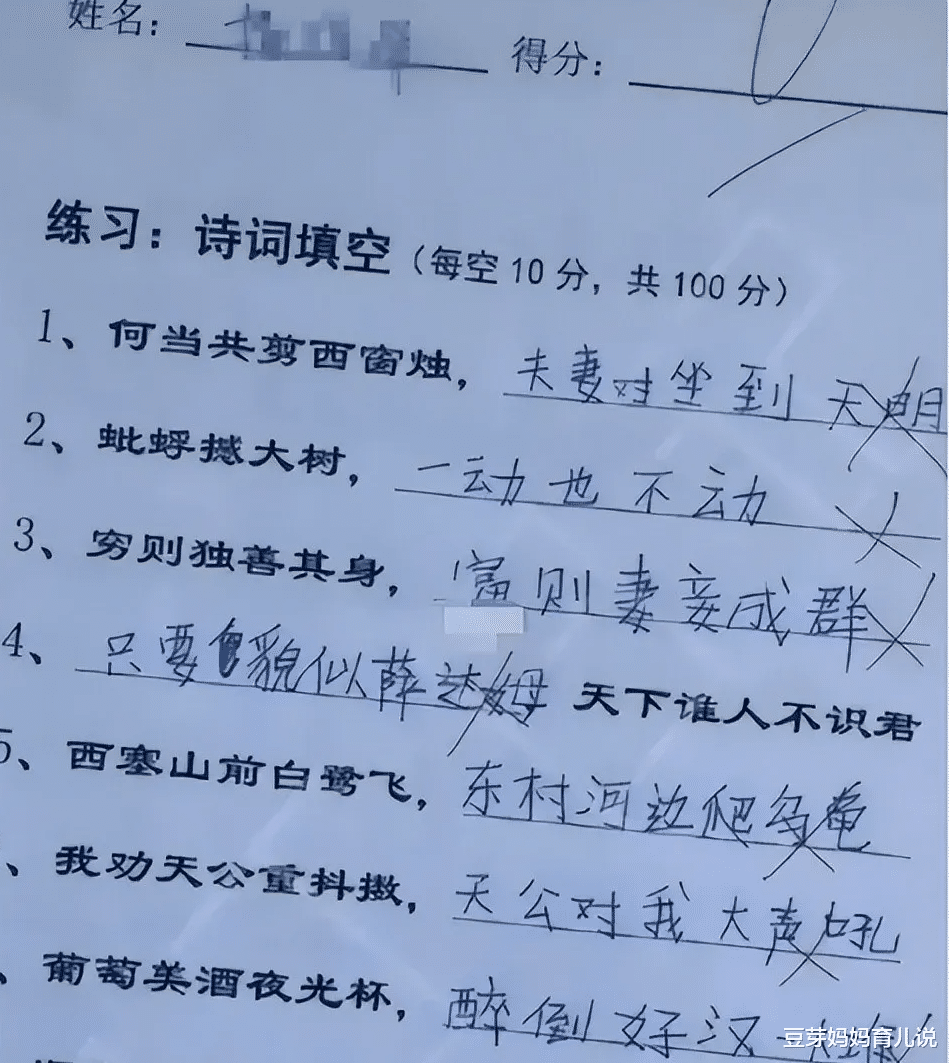 姓名： 得分：
练习：诗词填空（每空10分，共100分）
1、何当共剪西窗烛，夫妻对坐到天明
2、蚍蜉撼大树，一动也不动
3、穷则独善其身，富则妻妾成群
4、只要貌似薛达姆 天下谁人不识君
5、西塞山前白鹭飞，东村河边爬乌龟
、我劝天公重抖擞，天公对我大声吼
、葡萄美酒夜光杯，醉倒好汉一大
豆芽妈妈育儿说